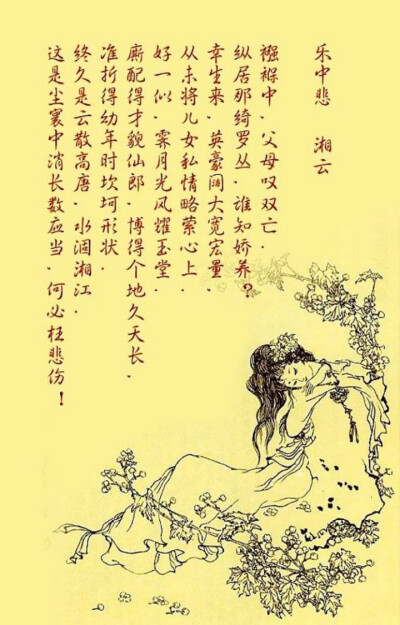 乐中悲 湘云
襁褓中.父母叹双亡.
纵居那绮罗丛.谁知娇养?
幸生来.英豪阔大宽宏量.
从未将儿女私情略萦心上.
好一似.霁月光风耀玉堂.
厮配得才貌仙郎.博得个地久天长.
准折得幼年时坎坷形状.
终久是云散高唐.水涸湘江.
这是尘寰中消长数应当.何必枉悲伤!